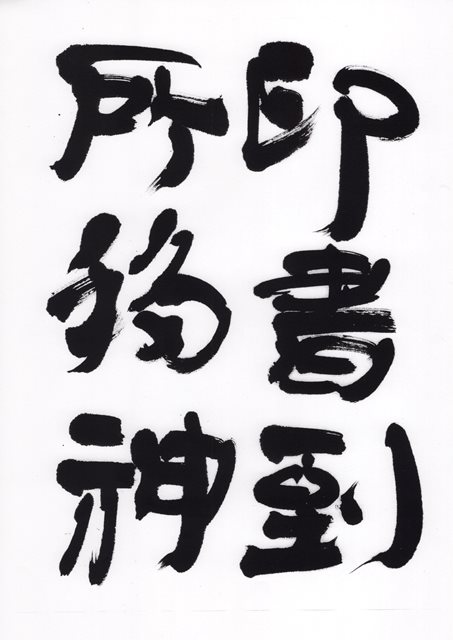 印書到
所移神